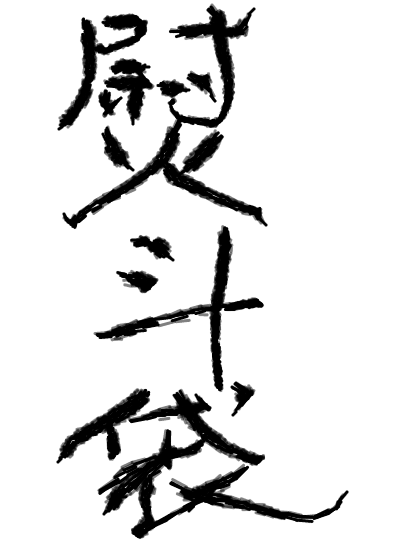 熨斗袋